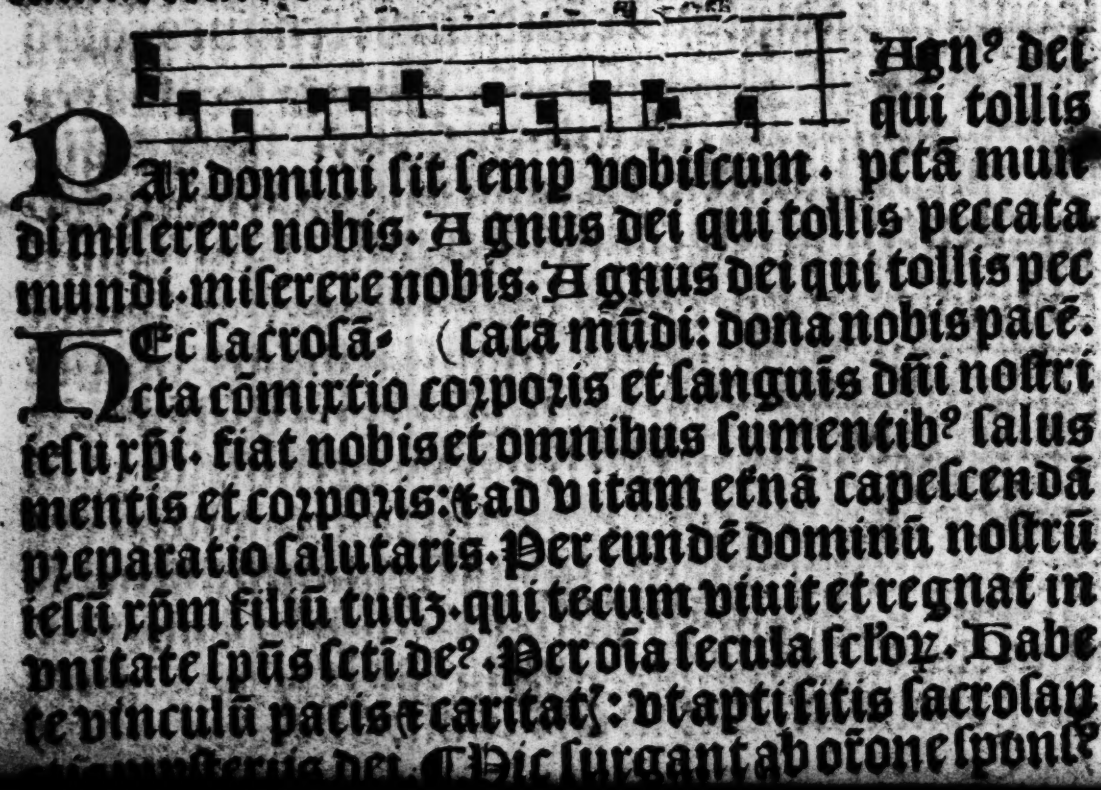 Agnꝰ dei
qui tollis
PAx domini ſit ſemꝑ vobiſcum. pctā mun
di miſerere nobis. Agnus dei qui tollis peccata
mundi. miſerere nobis. Agnus dei qui tollis pec
HEc ſacroſā⸗ (cata mūdi: dona nobis pacē.
cta cōmixtio coꝛpoꝛis et ſanguīs dn̄i noſtri
ieſu xp̄i. fiat nobis et omnibus ſumentibꝰ ſalus
mentis et coꝛpoꝛis: ⁊ ad vitam et̄nā capeſcendā
pꝛeparatio ſalutaris. Per eundē dominū noſtrū
ieſū xp̄m filiū tuuꝫ. qui tecum viuit et regnat in
vnitate ſpūs ſcti deꝰ. Per oīa ſecula ſcl̄oꝝ. Habe
te vinculū pacis ⁊ caritatꝭ: vt apti ſitis ſacroſan
dei. ¶Hic ſurgant ab or̄one ſponſꝰ